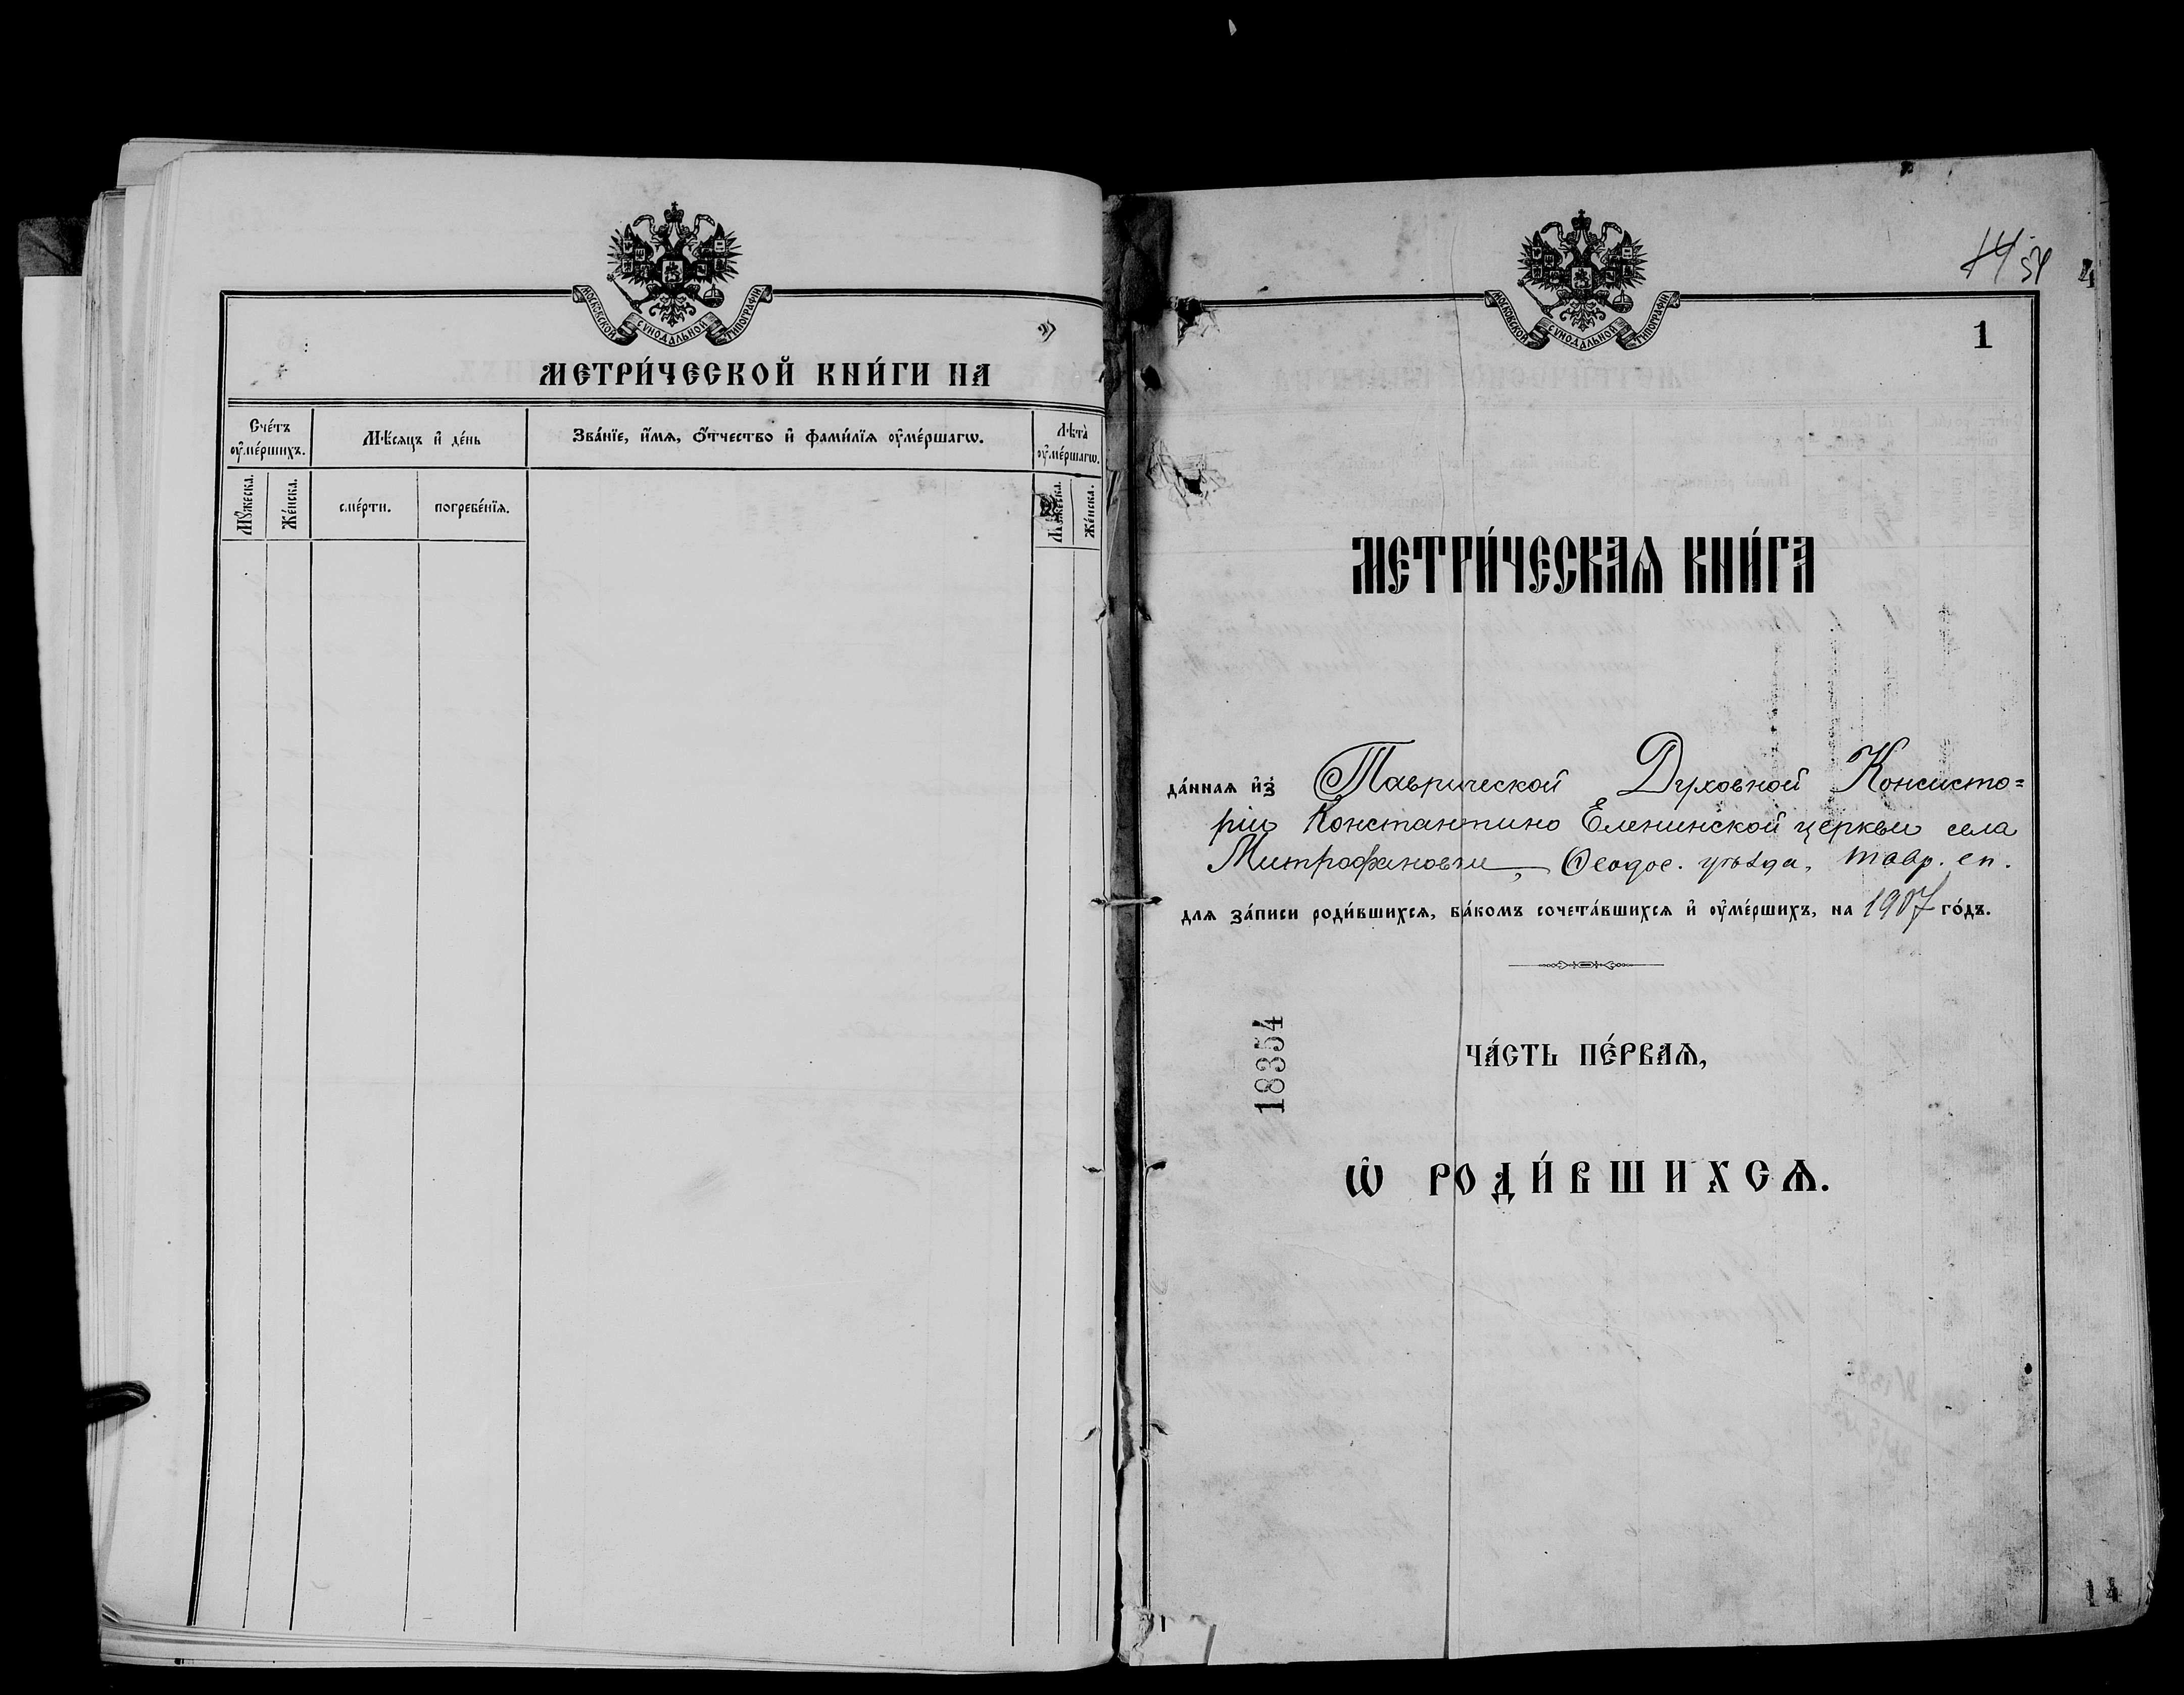 МОСКОВСКОЙ СУНОДАЛЬНОЙ ТИПОГРАФІИ
МЕТРИ́ЧЕСКОЙ КНИ́ГИ НА
Сче́тъ ᲂу҆ме́ршихъ.
Мѣ́сяцъ и҆ де́нь
Зва́нїе, и҆́мѧ, ѻ҆́тчество и҆ фами́лїѧ ᲂу҆ме́ршагѡ.
Лѣта̀ ᲂу҆ме́ршагѡ.
Мꙋ́жеска.
Же́нска.
сме́рти.
погребе́нїѧ.
Мꙋ́жеска.
Же́нска.
54
МОСКОВСКОЙ СУНОДАЛЬНОЙ ТИПОГРАФІИ
1
МЕТРИ́ЧЕСКАѦ КНИ́ГА
да́ннаѧ и҆з̾ Таврической Духовной Консисто=
ріи Константино Еленинской церкви села
Митрофановки, Ѳеодос. уѣзда, Тавр. еп.
для за́писи роди́вшихсѧ, бра́комъ сочета́вшихсѧ и҆ ᲂу҆ме́ршихъ, на 1907 го́дъ.
18354
ЧА́СТЬ ПЕ́РВАѦ,
Ѽ РОДИ́ВШИХСѦ.
14